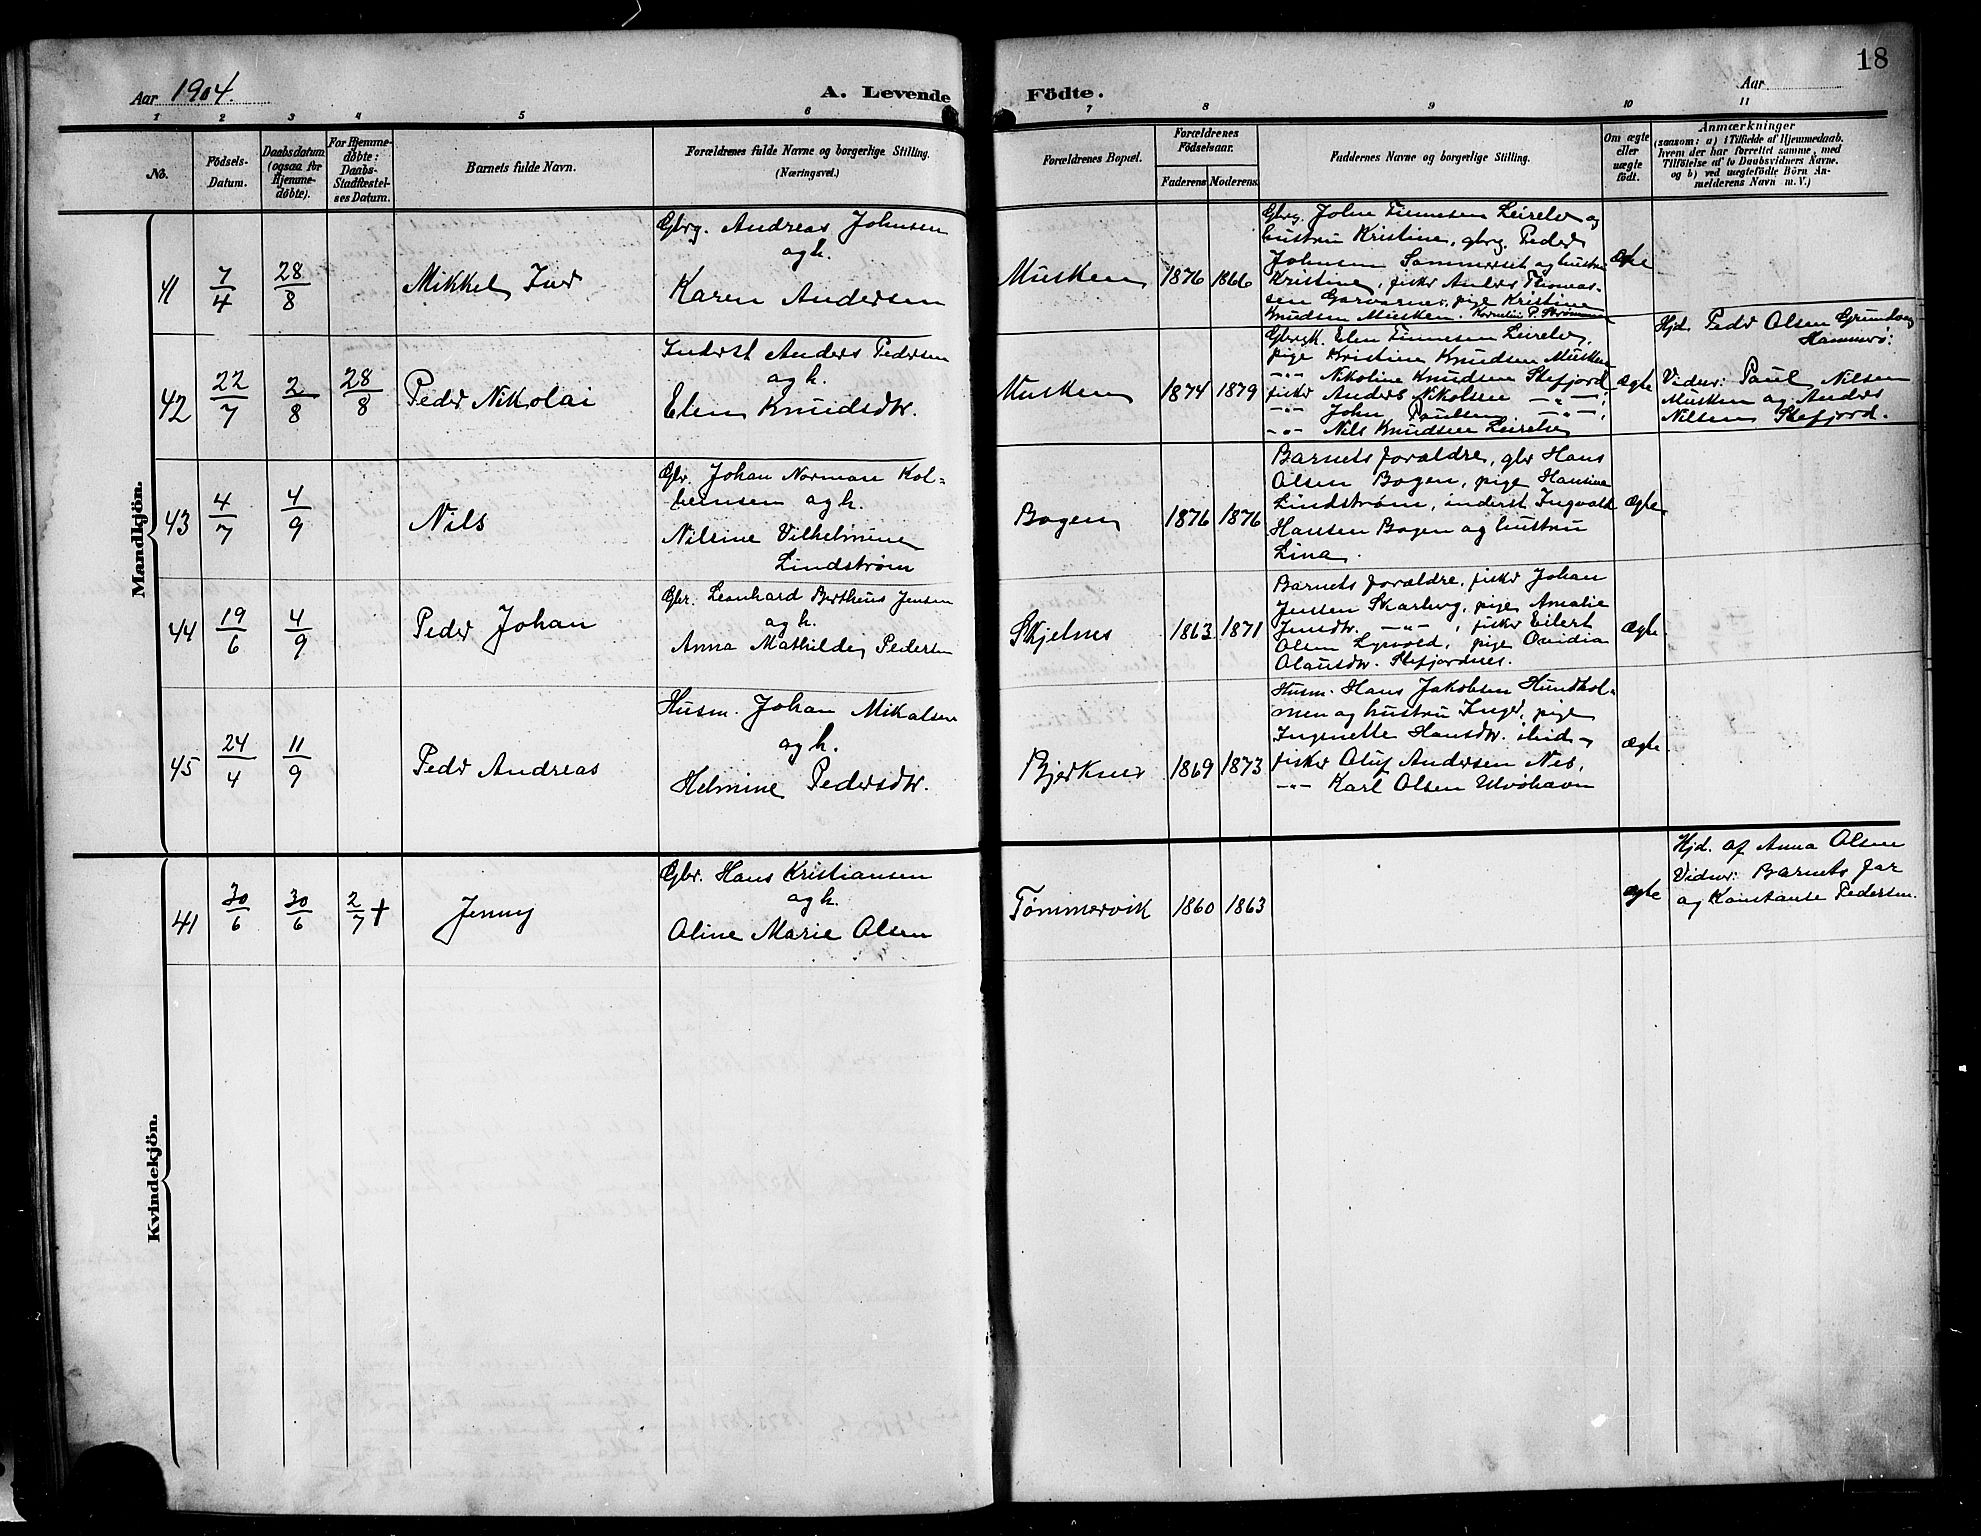 18
Aar 1904.
A. Levende Födte.
Aar
1 2 3 4 5 6 7 8 9 10 11
No.
Födsels-
Datum.
Daabsdatum
(ogsaa for
Hjemme-
döbte).
For Hjemme-
döbte:
Daabs-
Stadfæstel-
ses Datum.
Barnets fulde Navn.
Forældrenes fulde Navne og borgerlige Stilling.
(Næringsvei.)
Forældrenes Bopæl.
Forældrenes
Födselsaar.
Faderens. Moderens.
Faddernes Navne og borgerlige Stilling.
Om ægte
eller
uægte
födt.
Anmærkninger
(saasom: a) i Tilfælde af Hjemmedaab,
hvem der har forrettet samme, med
Tilföielse af to Daabsvidners Navne,
og b) ved uægtefödte Börn An-
melderens Navn m. V.)
Mandkjön.
41
7/4
28/8
Mikkel
Gbrg. Andreas Johnsen
og h.
Karen Andersen
Musken
1876 1866
Gbrg. John Finnesen Leirelv og
hustru Kristine, gbrg. Peder
Johnsen Sommerset og hustru
Kristine, fisker Anders Thomas-
sen, pige Kristine
Knudsen Musken.
ægte
42
22/7
2/8
28/8
Peder Nikolai
Inderst Anders Pedersen
og h.
Elen Knudsdtr.
Musken
1874 1879
Elen Finnesen Leirelv,
pige Kristine Knudsen Musken
-"- Nikoline Knudsen Stefjord
fisker Anders Nikolsen -"-
-"- John Paulsen -"-
-"- Nils Knudsen Leirelv
ægte
Hjd. Peder Olsen
Hammerø:
Vidner: Paul Nilsen
Musken og Anders
Nilsen Stefjord.
43
4/7
4/9
Nils
Gbr. Johan Norman Kol-
beinsen og h.
Nilsine Vilhelmine
Lindstrøm
Bogen
1876 1876
Barnets forældre, gbr Hans
Olsen Bogen, pige Hansine
Lindstrøm, inderst Ingvald
Hansen Bogen og hustru
Lina.
ægte
44
19/6
4/9
Peder Johan
Gbr. Leonhard Bertheus Jensen
og h.
Anna Mathilde Pedersen
Skjelnes
1863 1871
Barnets forældre, fisker Johan
Jensen Skarberg, pige Amalie
Jensdtr. -"-, fisker Eilert
Olsen, pige Ovidia
Olausdtr. Stefjordnes.
ægte.
45
24/4
11/9
Peder Andreas
Husm. Johan Mikalsen
og h.
Helmine Pedersdtr.
Bjerknes
1869 1873
Husm. Hans Jakobsen Hundhol-
men og hustru Inger, pige
Ingenette Hansdtr. ibid-
fisker Oluf Andersen Nes,
-"- Karl Olsen Ulvøhavn
ægte.
Kvindekjön.
41
30/6
30/6
2/7 †
Jenny
Gbr. Hans Kristiansen
og h.
Aline Marie Olsen
Tømmervik
1860 1863
ægte
Hjd. af Anna Olsen
Vidner: Barnets far
og Konstanse Pedersen.